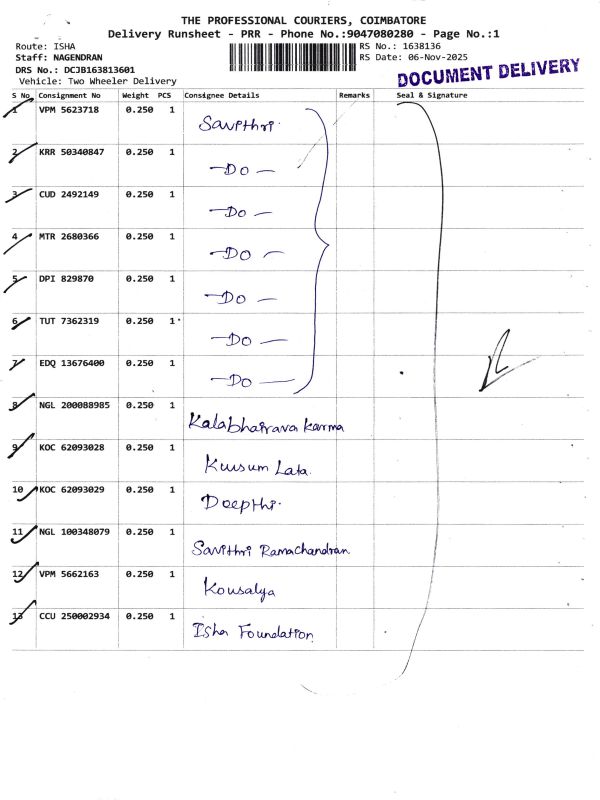 THE PROFESSIONAL COURIERS, COIMBATORE
Delivery Runsheet - PRR - Phone No.:9047080280 - Page No.:1
Route: ISHA
RS No.: 1638136
Staff: NAGENDRAN
RS Date: 06-Nov-2025
DRS No.: DCJB163813601
Vehicle: Two Wheeler Delivery
DOCUMENT DELIVERY
S No Consignment No Weight PCS Consignee Details Remarks Seal & Signature
1 VPM 5623718 0.250 1 Savithri.
2 KRR 50340847 0.250 1 -Do-
3 CUD 2492149 0.250 1 -Do-
4 MTR 2680366 0.250 1 -Do-
5 DPI 829870 0.250 1 -Do-
6 TUT 7362319 0.250 1 -Do-
7 EDQ 13676400 0.250 1 -Do-
8 NGL 200088985 0.250 1 Kalabhairava karma
9 KOC 62093028 0.250 1 Kusum Lata.
10 KOC 62093029 0.250 1 Deepthi.
11 NGL 100348079 0.250 1 Savithri Ramachandran
12 VPM 5662163 0.250 1 Kousalya
13 CCU 250002934 0.250 1 Isha Foundation